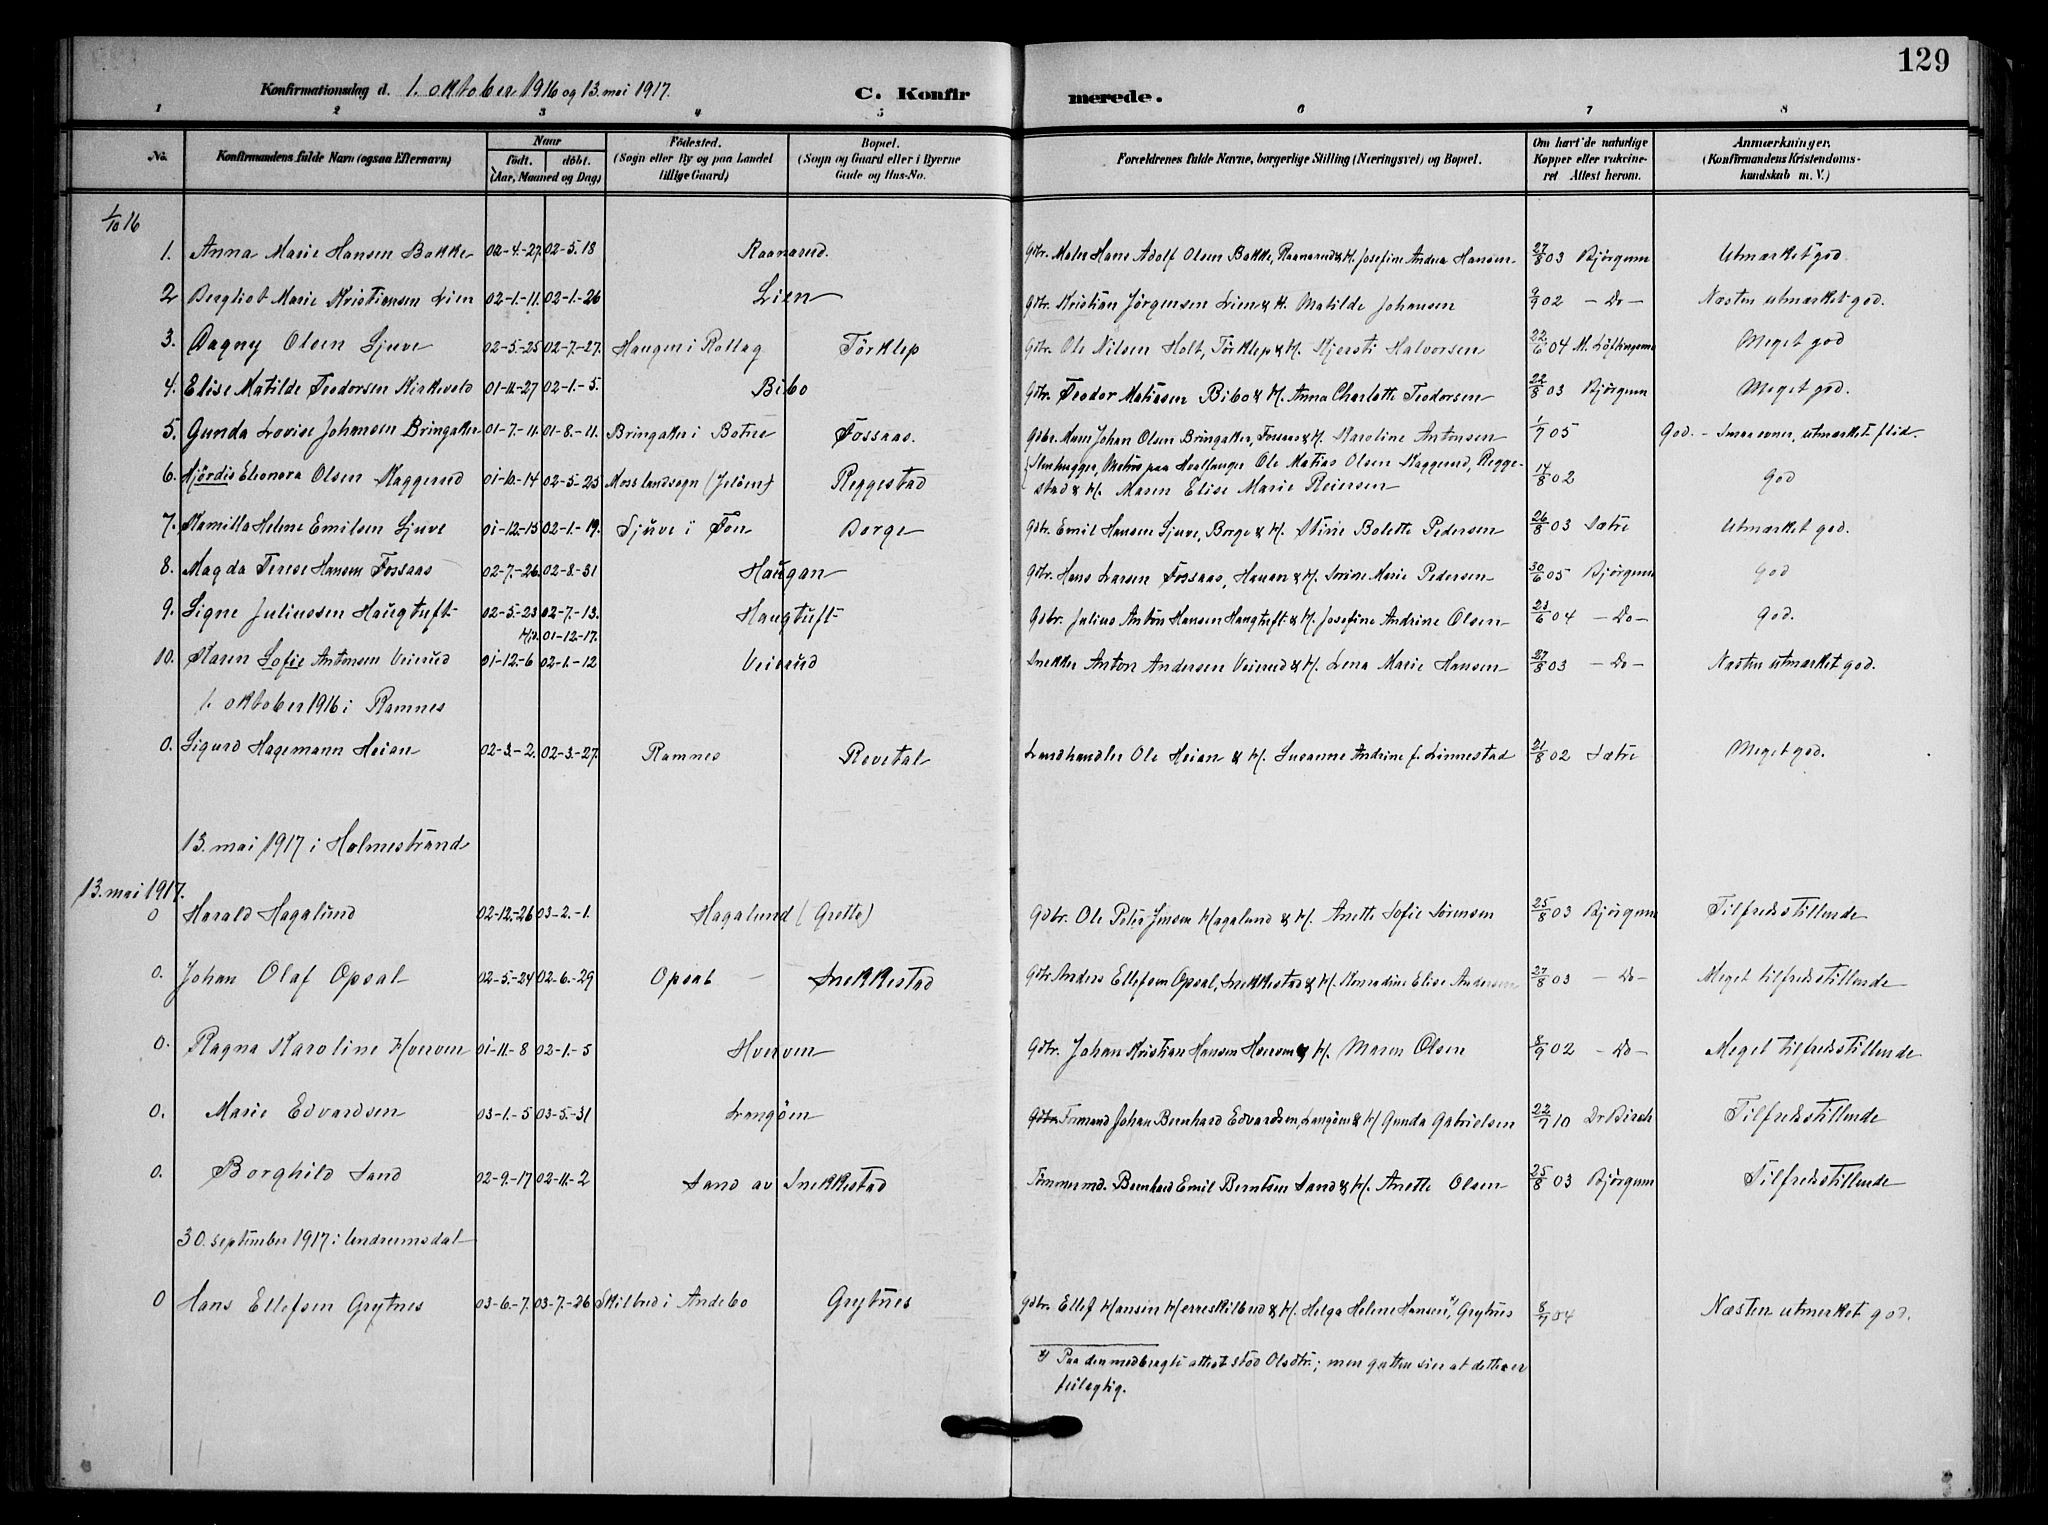 129
Konfirmationsdag d. 1. oktober 1916 og 13. mai 1917. C. Konfirmerede.
1 2 3 4 5 6 7 8
No. Konfirmandens fulde Navn (ogsaa Efternavn) Naar født. døbt. (Aar, Maaned og Dag) Fødested. (Sogn eller By og paa Landet tillige Gaard) Bopæl. (Sogn og Gaard eller i Byerne Gade og Hus-No. Forældrenes fulde Navne, borgerlige Stilling (Næringsvei) og Bopæl. Om havt de naturlige Kopper eller vaccineret Attest herom. Anmærkninger. (Konfirmandens Kristendomskundskab m. V.)
1/10 16
1. Anna Marie Hansen Bakke 02-4-27. 02-5-18 Raanarud. Gbr. Maler Hans Adolf Olsen Bakke, Raanarud & H. Josefine Andrea Hansen 27/8 03 Bjørgum Utmærket god.
2 Bergliot Marie Kristiansen Lien 02-1-11. 02-1-26 Lien Gbr. Kristian Jørgensen Lien & H. Matilde Johansen 9/9 02 - Do - Næsten utmærket god.
3. Dagny Olsen Ljuve 02-5-25 02-7-27. Haugen i Rollag Tørklep Gbr. Ole Nilsen Holt, Tørklep & H. Kjersti Halvorsen 22/6 04 Meget god
4. Elise Matilde Teodorsen Kirkevold 01-11-27 02-1-5. Bibo Gbr. Teodor Matiesen Bibo & H. Anna Charlotte Teodorsen 22/8 03 Bjørgum Meget god.
5. Gunda Lovise Johansen Bringaker 01-7-11. 01-8-11. Bringaker i Botne Fossaas. Gdbr. Johan Olsen Bringaker, Fossaas & H. Karoline Antonsen 1/7 05 God. - Smaa evner, utmærket flid.
6. Hjørdis Eleonora Olsen Kaggerud 01-10-14 02-5-25 Moss landsogn (Jeløen) Reggestad Stenhugger, Matros paa Hvalfanger Ole Matias Olsen Kaggerud, Reggestad & H. Maren Elise Marie Reiersen 14/8 02 God
7. Kamilla Helene Emilsen Ljuve 01-12-15 02-1-19. Ljuve i Fon Borge Gbr. Emil Hansen Ljuve, Borge & H. Stine Bolette Pedersen 26/8 03 Sætre Utmærket god.
8. Magda Terese Hansen Fossaas 02-7-26. 02-8-31 Haugan Gbr. Hans Larsen Fossaas, Hauan & H. Sorine Marie Pedersen 30/6 05 Bjørgum God
9. Signe Juliussen Haugtuft 02-5-23 02-7-13. Haugtuft Gdbr. Julius Anton Hansen Haugtuft & H. Josefine Andrine Olsen 23/6 04 - Do - God.
01-12-17.
10. Karen Sofie Antonsen Veierud 01-12-6 02-1-12 Veierud Snekker Anton Andersen Veierud & H. Lena Marie Hansen 27/8 03 - Do - Næsten utmærket god.
1. oktober 1916 i Ramnes
0. Sigurd Hagemann Heian 02-3-2. 02-3-27. Ramnes Revetal Landhandler Ole Heian & H. Susanne Andrine f. Linnestad 21/8 02 Sætre Meget god.
13. mai 1917 i Holmestrand
13. mai 1917.
0 Harald Hagalund 02-12-26 03-2-1. Hagalund (Grette) Gdbr. Ole Peter Jensen Hagalund & H. Anette Sofie Sørensen 25/8 03 Bjørgum Tilfredsstillende
0. Johan Olaf Opsal 02-5-24 02-6-29 Opsal - Snekkestad Gbr. Anders Ellefsen Opsal, Snekkestad & H. Konradine Elise Andersen 27/8 03 - Do - Meget tilfredsstillende
0. Ragna Karoline Hverven 01-11-8 02-1-5 Hverven Gdbr. Johan Kristian Hansen Hverven & H. Maren Olsen 8/9 02 - Do - Meget tilfredsstillende
0. Marie Edvardsen 03-1-5 03-5-31 Langøen Gdbr. Formand Johan Bernhard Edvardsen, Langøen & H Gunda Gabrielsen 22/7 10 Dr Birch Tilfredsstillende
0. Borghild Sand 02-9-17 02-11-2 Sand av Snekkestad Tømmermd. Bernhard Emil Berntsen Sand & H. Anette Olsen 25/8 03 Bjørgum Tilfredsstillende
30. september 1917 i Undrumsdal
0 Hans Ellefsen Grytnes 03-6-7. 03-7-26 Skilbred i Andebo Grytnes Gdbr. Ellef Hansen Herreskilbred & H. Helga Helene Hansen x), Grytnes 8/7 04 Næsten utmerket god.
x) Paa den medbragte attest stod Olsdtr.; men gutten sier at dette er
feilagtig.